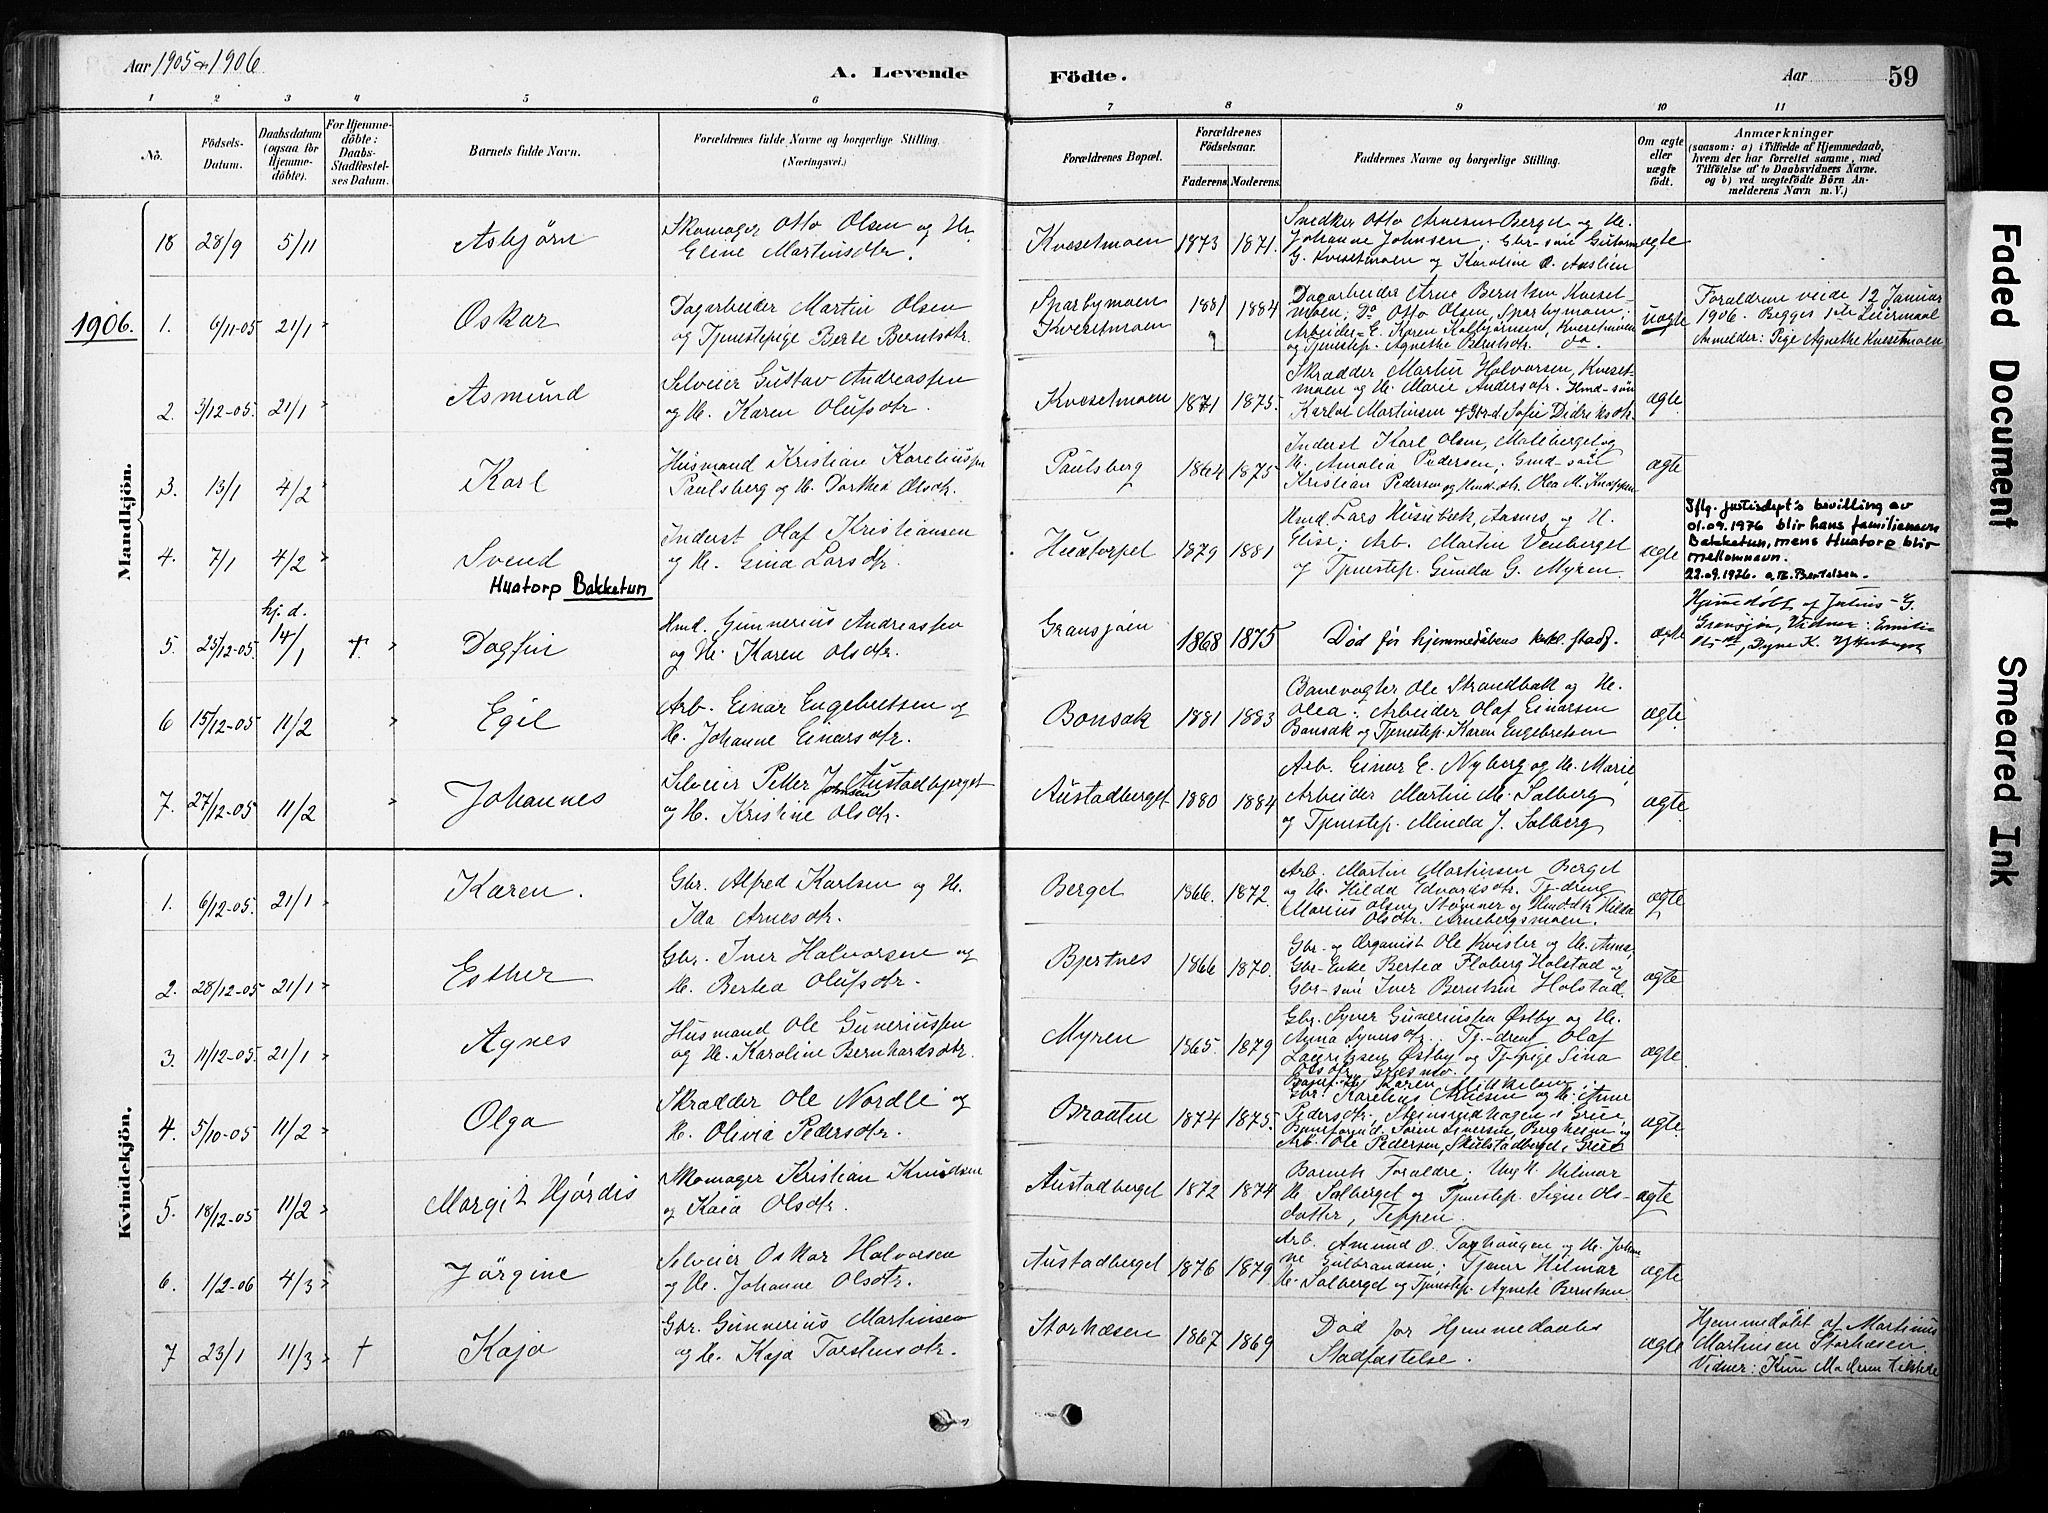 Aar 1905 & 1906
A. Levende Födte.
Aar
59
1 2 3 4 5 6 7 8 9 10 11
No.
Födsels-
Datum.
Daabsdatum
(ogsaa for
Hjemme-
döbte).
For Hjemme-
döbte:
Daabs-
Stadfæstel-
ses Datum.
Barnets fulde Navn.
Forældrenes fulde Navne og borgerlige Stilling.
(Næringsvei.)
Forældrenes Bopæl.
Forældrenes
Födselsaar.
Faderens. Moderens.
Faddernes Navne og borgerlige Stilling.
Om ægte
eller
uægte
födt.
Anmærkninger
(saasom: a) i Tilfælde af Hjemmedaab,
hvem der har forrettet samme, med
Tilföielse af to Daabsvidners Navne.
og b) ved uægtefödte Börn An-
melderens Navn m. V.)
Mandkjön.
18 28/9 5/11 Asbjörn
Skomager Otto Olsen og H.
Eline Martinsdtr.
Kvesetmoen 1873 1871.
Snedker Otto Arnesen Berget og H.
Johanne Johnsen; Gbr-søn Guttorm
G. Kvesetmoen og Karoline O. Aaslien
ægte
1906.
1. 6/11-05 21/1 Oskar
Dagarbeider Martin Olsen
og Tjenestepige Berte Berntsdtr.
Sparbymoen
Kvesetmoen
1881 1884
Dagarbeider Arne Berntsen Kveset-
moen, Do Otto Olsen, Sparbymoen;
Arbeider-E. Karen Kolbjørnsen, Kvesetmoen
og Tjenestep. Agnethe Berntsdtr. do.
uægte
Forældrene viede 12 Januar
1906. Begges 1ste Leiermaal
Anmelder: Pige Agnethe Kvesetmoen
2. 3/12-05. 21/1 " Asmund
Selveier Gustav Andreassen
og H. Karen Olufsdtr.
Kvesetmoen 1871 1875.
Skrædder Martin Halvorsen, Kveset-
moen og H. Marie Andersdtr. Hmd-søn
Karlot Martinsen og Gbr-d. Sofie Didriksdtr.
ægte
3. 13/1 4/2 " Karl
Husmand Kristian Kareliussen
Paulsberg og H. Dorthea Olsdtr.
Paulsberg 1864 1875
Inderst Karl Olsen, Maliberget og
H. Amalia Pedersen; Hmd-søn
Kristian Pedersen og Hmd-dtr. Olea M. Knappen
ægte
4. 7/1 4/2 " Svend
Huatorp Bakketun
Inderst Olaf Kristiansen
og H. Gina Larsdtr.
Huatorpet 1879 1881
Hmd. Lars Husebæk, Aasnes, og H.
Elise; Arb. Martin Venberget
og Tjenestep. Gunda G. Myren.
ægte
Iflg. justisdept's bevilling av
01.09.1976 blir hans familienavn
Bakketun, mens Huatorp blir
mellomnavn.
22.09.1976. Bertelsen.
5. 25/12-05. hj. d. 14/1 † " Dagfin
Hmd. Gunnerius Andreassen
og H. Karen Olsdtr.
Gransjøen 1868 1875
Død før hjemmedåbens kirkl. stadf.
ægte
Hjemmedøbt af Julius G.
Gransjø, Vidner: Emilie
6 15/12-05 11/2 " Egil
Arb. Einar Engebretsen og
H. Johanne Einarsdtr.
Bonsak 1881 1883
Banevogter Ole Strandbæk og H.
Olea; Arbeider Olaf Einarsen
Bonsak og Tjenestep. Karen Engebretsen
ægte
7. 27/12-05 11/2 " Johannes
Selveier Petter Johnsen Austadberget
og H. Kristine Olsdtr.
Austadberget 1880 1884
Arb. Einar E. Nyberg og H. Marie,
Arbeider Martin M. Solberg
og Tjenestep. Minda J. Solberg
ægte
Kvindekjön.
1. 6/12-05. 21/1 " Karen.
Gbr. Alfred Karlsen og H.
Ida Arnesdtr.
Berget 1866. 1872.
Arb. Martin Martinsen Berget
og H. Hilda Edvardsdtr. Tj-dreng
Marius Olsen Stømner og Hmddtr Hilda
Olsdtr. Arnebergsmoen.
ægte
2. 28/12-05 21/1 " Esther
Gbr. Iver Halvorsen og
H. Bertea Olufsdtr.
Bjertnes 1866 1870.
Gbr- og Organist Ole Kvisler og H. Anna,
Gbr-Enke Bertea Floberg Holstad og
Gbr-søn Iver Berntsen Holstad.
ægte
3. 11/12-05. 21/1 " Agnes
Husmand Ole Guneriussen
og H. Karoline Bernhardsdtr.
Myren 1865. 1879
Gbr. Syver Guneriussen Østby og H.
Anna Syversdtr.; Tj.-dreng Olaf
Lauritzsen Østby og Tj-pige Sina
Olsdtr. Græsmo.
ægte
4. 5/10-05 11/2 " Olga
Skrædder Ole Nordli og
H. Olivia Pedersdtr.
Braaten 1874 1875.
Karen Mikkelsen.
Gbr. Karelius Arnesen og H. Anne
Pedersdtr. Steinsmedhagen i Grue,
Søren Iversen Bergheim og
Arb. Ole Pedersen, Skulstadberget i Grue
ægte.
5. 18/12-05 11/2 " Margit Hjørdis
Skomager Kristian Knudsen
og Kaia Olsdtr.
Austadberget 1872 1874
Barnets Forældre; Ung H. Hilmar
H. Solberget og Tjenestep. Signe Ols-
datter, Teppen
ægte
6. 1/2-06 4/3 " Jörgine
Selveier Oskar Halvorsen
og H. Johanne Olsdtr.
Austadberget 1876 1879
Arb. Amund O. Torhaugen og H. Johan
ne Gulbrandsen; Tjener Hilmar
H. Solberget og Tjenestep. Agnete Berntsen.
ægte
7 23/1 11/3 " † Kaja
Gbr. Gunnerius Martinsen
og H. Kaja Torstensdtr.
Storhæsen 1867 1869
Død før Hjemmedaabs
Stadfæstelse.
ægte
Hjemmedøbt af Martinus
Martinsen Storhæsen
Vidner: Kun Moderen tilstede
Faded Document
Smeared Ink